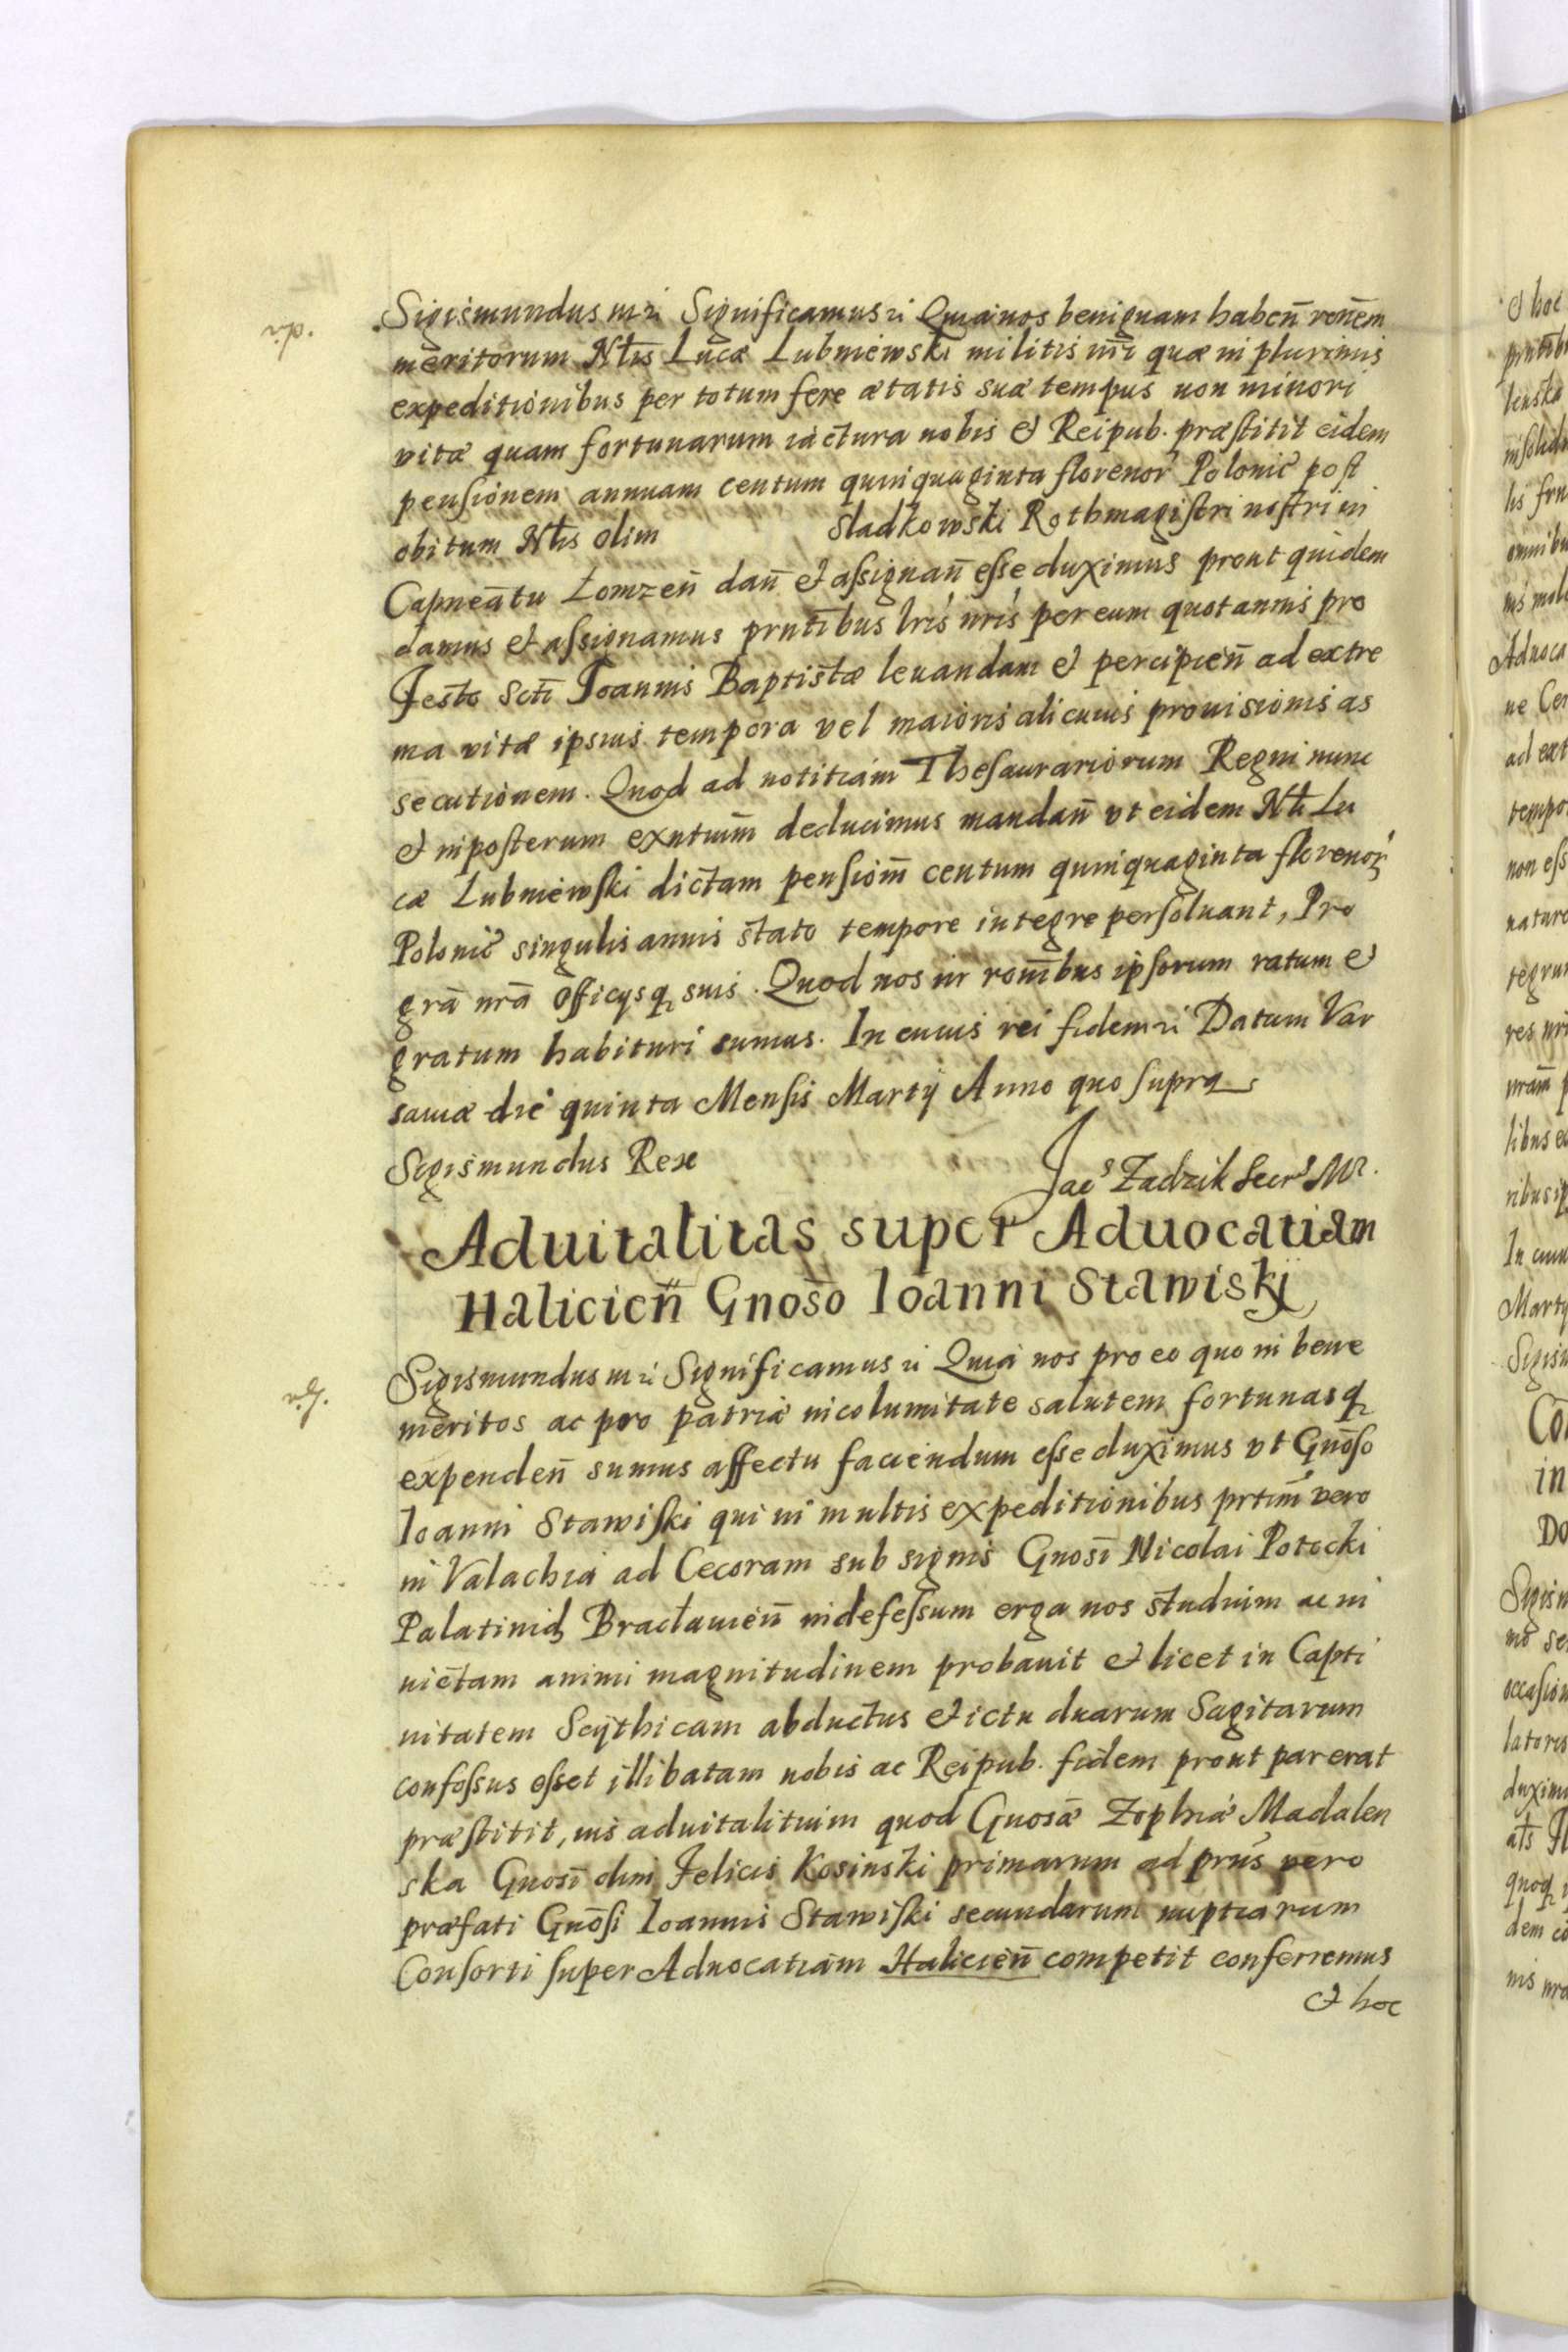 Sigismundus mri Significamus ri Quia nos benignam haben̄ ronem̄
meritorum Nt̄is Lucæ Lubniewski militis nr̄i quæ in plurimis
expeditionibus per totum fere ætatis suæ tempus non minori
vitæ quam fortunarum iactura nobis & Reipub. præstitit eidem
pensionem annuam centum quinquaginta florenor Polonic̄ post
obitum Nt̄is olim Sladkowski Rothmagistri nostri in
Capneatu Łomzen̄ dan̄ et assignan̄ esse duximus prout quidem
damus et assignamus prntībus lris nris per eum quotannis pro
Festo Scti Joannis Baptistæ leuandam & percipien̄ ad extre
ma vitæ ipsius tempora vel maioris alicuius prouisionis as
secutionem. Quod ad notitiam Thesaurariorum Regni nunc
& inposterum exntium̄ deducimus mandan̄ vt eidem Nt̄i Lu
cæ Lubniewski dictam pensiom̄ centum quinquaginta florenor
Polonic̄ singulis annis stato tempore integre persoluant, Pro
grā nrā officijsq suis. Quod nos in ronībus ipsorum ratum &
gratum habituri sumus. In cuius rei fidem ri Datum Var
sauiæ die quinta Mensis Martij Anno quo supra
Sigismundus Rex
Jac⁵ Zadzik Secr⁵ Mr.
Aduitalitas super Aduocatiam
Halicien̄ Gnos̄o Ioanni Stawiskj
Sigismundus mri Significamus ri Quia nos pro eo quo in bene
meritos ac pro patriæ incolumitate salutem fortunasq
expenden̄ sumus affectu faciendum esse duximus vt Gnos̄o
Ioanni Stawiski qui in multis expeditionibus prtim̄ vero
in Valachia ad Cecoram sub signis Gnosī Nicolai Potocki
Palatinid Bracłauien̄ indefessum erga nos studium ac in
uictam animi magnitudinem probauit & licet in Capti
uitatem Scÿthicam abductus & ictu duarum Sagitarum
confossus esset illibatam nobis ac Reipub. fidem prout par erat
præstitit, ius aduitalitium quod Gnosæ Zophiæ Madalen
ska Gnosī olim Felicis Kosinski primarum ad prn̄s vero
præfati Gnōsi Ioannis Stawiski secundarum nuptiarum
Consorti super Aduocatiam Halicien̄ competit conferremus
& hoc